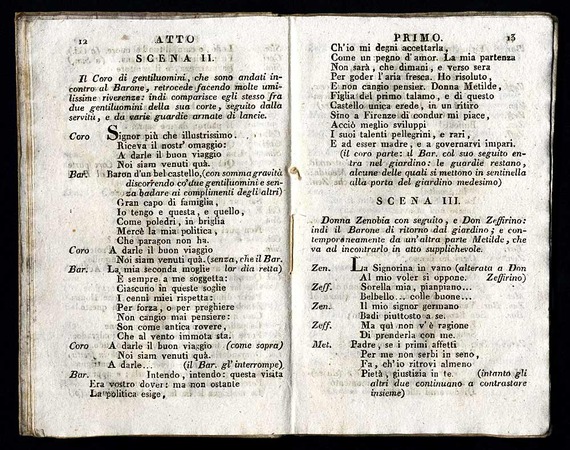 12 ATTO
SCENA II.
Il Coro di gentiluomini, che sono andati in-
contro al Barone, retrocede facendo molte umi-
lissime riverenze: indi comparisce egli stesso fra
due gentiluomini della sua corte, seguito dalla
servitù, e da varie guardie armate di lancie.
Coro Signor più che illustrissimo.
Riceva il nostr' omaggio:
A darle il buon viaggio
Noi siam venuti quà.
Bar. Baron d'un bel castello, (con somma gravità
discorrendo co' due gentiluomini e sen-
za badare ai complimenti degli altri)
Gran capo di famiglia,
Io tengo e questa, e quello,
Come poledri, in briglia
Mercè la mia politica,
Che paragon non ha.
Coro A darle il buon viaggio
Noi siam venuti quà. (senza, che il Bar.
Bar. La mia seconda moglie lor dia retta)
È sempre a me soggetta:
Ciascuno in queste soglie
I cenni miei rispetta:
Per forza, o per preghiere
Non cangio mai pensiere:
Son come antica rovere,
Che al vento immota sta.
Coro A darle il buon viaggio (come sopra)
Noi siam venuti quà.
A darle... (il Bar. gl' interrompe)
Bar. Intendo, intendo: questa visita
Era vostro dover: ma non ostante
La politica esige,
PRIMO. 13
Ch'io mi degni accettarla,
Come un pegno d'amor. La mia partenza
Non sarà, che dimani, e verso sera
Per goder l'aria fresca. Ho risoluto,
E non cangio pensier. Donna Metilde,
Figlia del primo talamo, e di questo
Castello unica erede, in un ritiro
Sino a Firenze di condur mi piace,
Acciò meglio sviluppi
I suoi talenti pellegrini, e rari,
E ad esser madre, e a governarvi impari.
(il coro parte: il Bar. col suo seguito en-
tra nel giardino: le guardie restano,
alcune delle quali si mettono in sentinella
alla porta del giardino medesimo)
SCENA III.
Donna Zenobia con seguito, e Don Zeffirino:
indi il Barone di ritorno dal giardino; e con-
temporaneamente da un'altra parte Metilde, che
va ad incontrarlo in atto supplichevole.
Zen. La Signorina in vano (alterata a Don
Al mio voler si oppone. Zeffirino)
Zeff. Sorella mia, pianpiano...
Belbello... colle buone...
Zen. Il mio signor germano
Badi piuttosto a se.
Zeff. Ma quì non v'è ragione
Di prenderla con me.
Met. Padre, se i primi affetti
Per me non serbi in seno,
Fa, ch'io ritrovi almeno
Pietà, giustizia in te. (intanto gli
altri due continuano a contrastare
insieme)